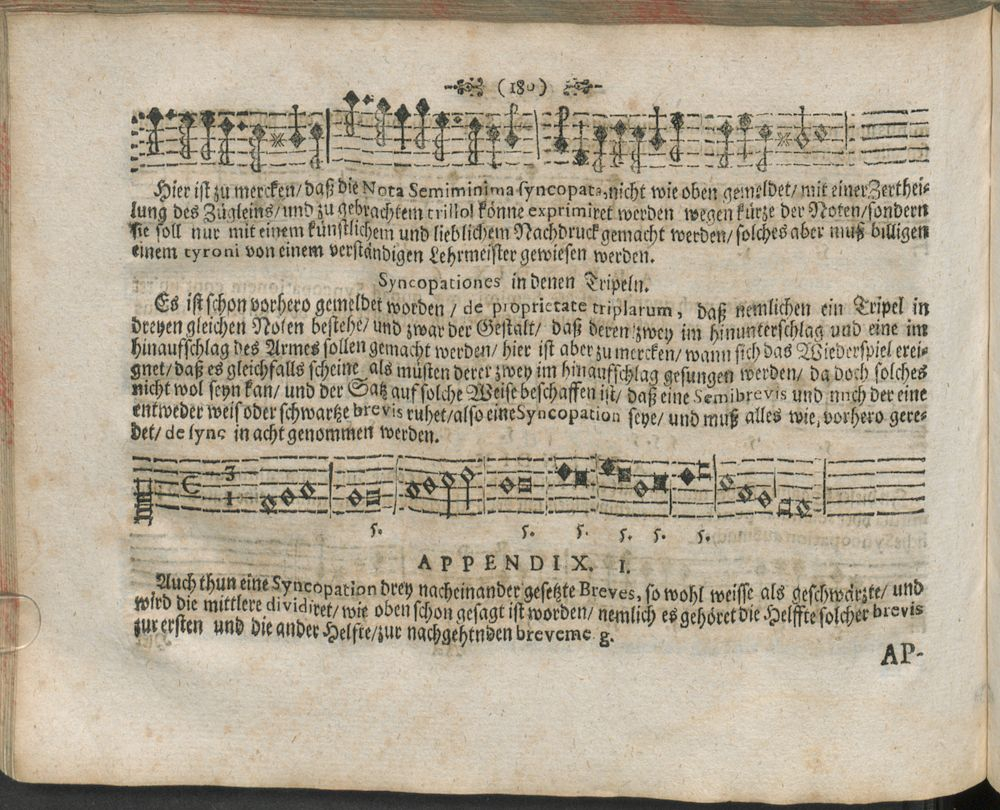 (180)
Hier ist zu mercken/ daß die Nota Semiminima syncopata, nicht wie oben gemeldet/ mit einer Zerthei-
lung des Zügleins/ und zu gebrachtem trillol könne exprimiret werden wegen kürze der Noten/ sondern
sie soll nur mit einem künstlichem und lieblichem Nachdruck gemacht werden/ solches aber muß billigen
einem tyroni von einem verständigen Lehrmeister gewiesen werden.
Syncopationes in denen Tripeln.
Es ist schon vorhero gemeldet worden / de proprietate triplarum, daß nemlichen ein Tripel in
dreyen gleichen Noten bestehe/ und zwar der Gestalt/ daß deren zwey im hinunterschlag und eine im
hinaufschlag des Armes sollen gemacht werden/ hier ist aber zu mercken/ wann sich das Wiederspiel erei-
gnet/ daß es gleichfalls scheine als müsten derer zwey im hinaufschlag gesungen werden/ da doch solches
nicht wol seyn kan/ und der Satz auf solche Weise beschaffen ist/ daß eine Semibrevis und nuch der eine
entweder weis oder schwartze brevis ruhet/ also eine Syncopation seye/ und muß alles wie, vorhero gere-
det/ de sync in acht genommen werden.
3
1
5. 5. 5. 5. 5. 5.
APPENDIX. 1.
Auch thun eine Syncopation drey nacheinander gesetzte Breves, so wohl weisse als geschwärzte/ und
wird die mittlere dividiret/ wie oben schon gesagt ist worden/ nemlich es gehöret die Helffte solcher brevis
zur ersten und die ander Helfte/ zur nachgehtnden breveme g.
AP-